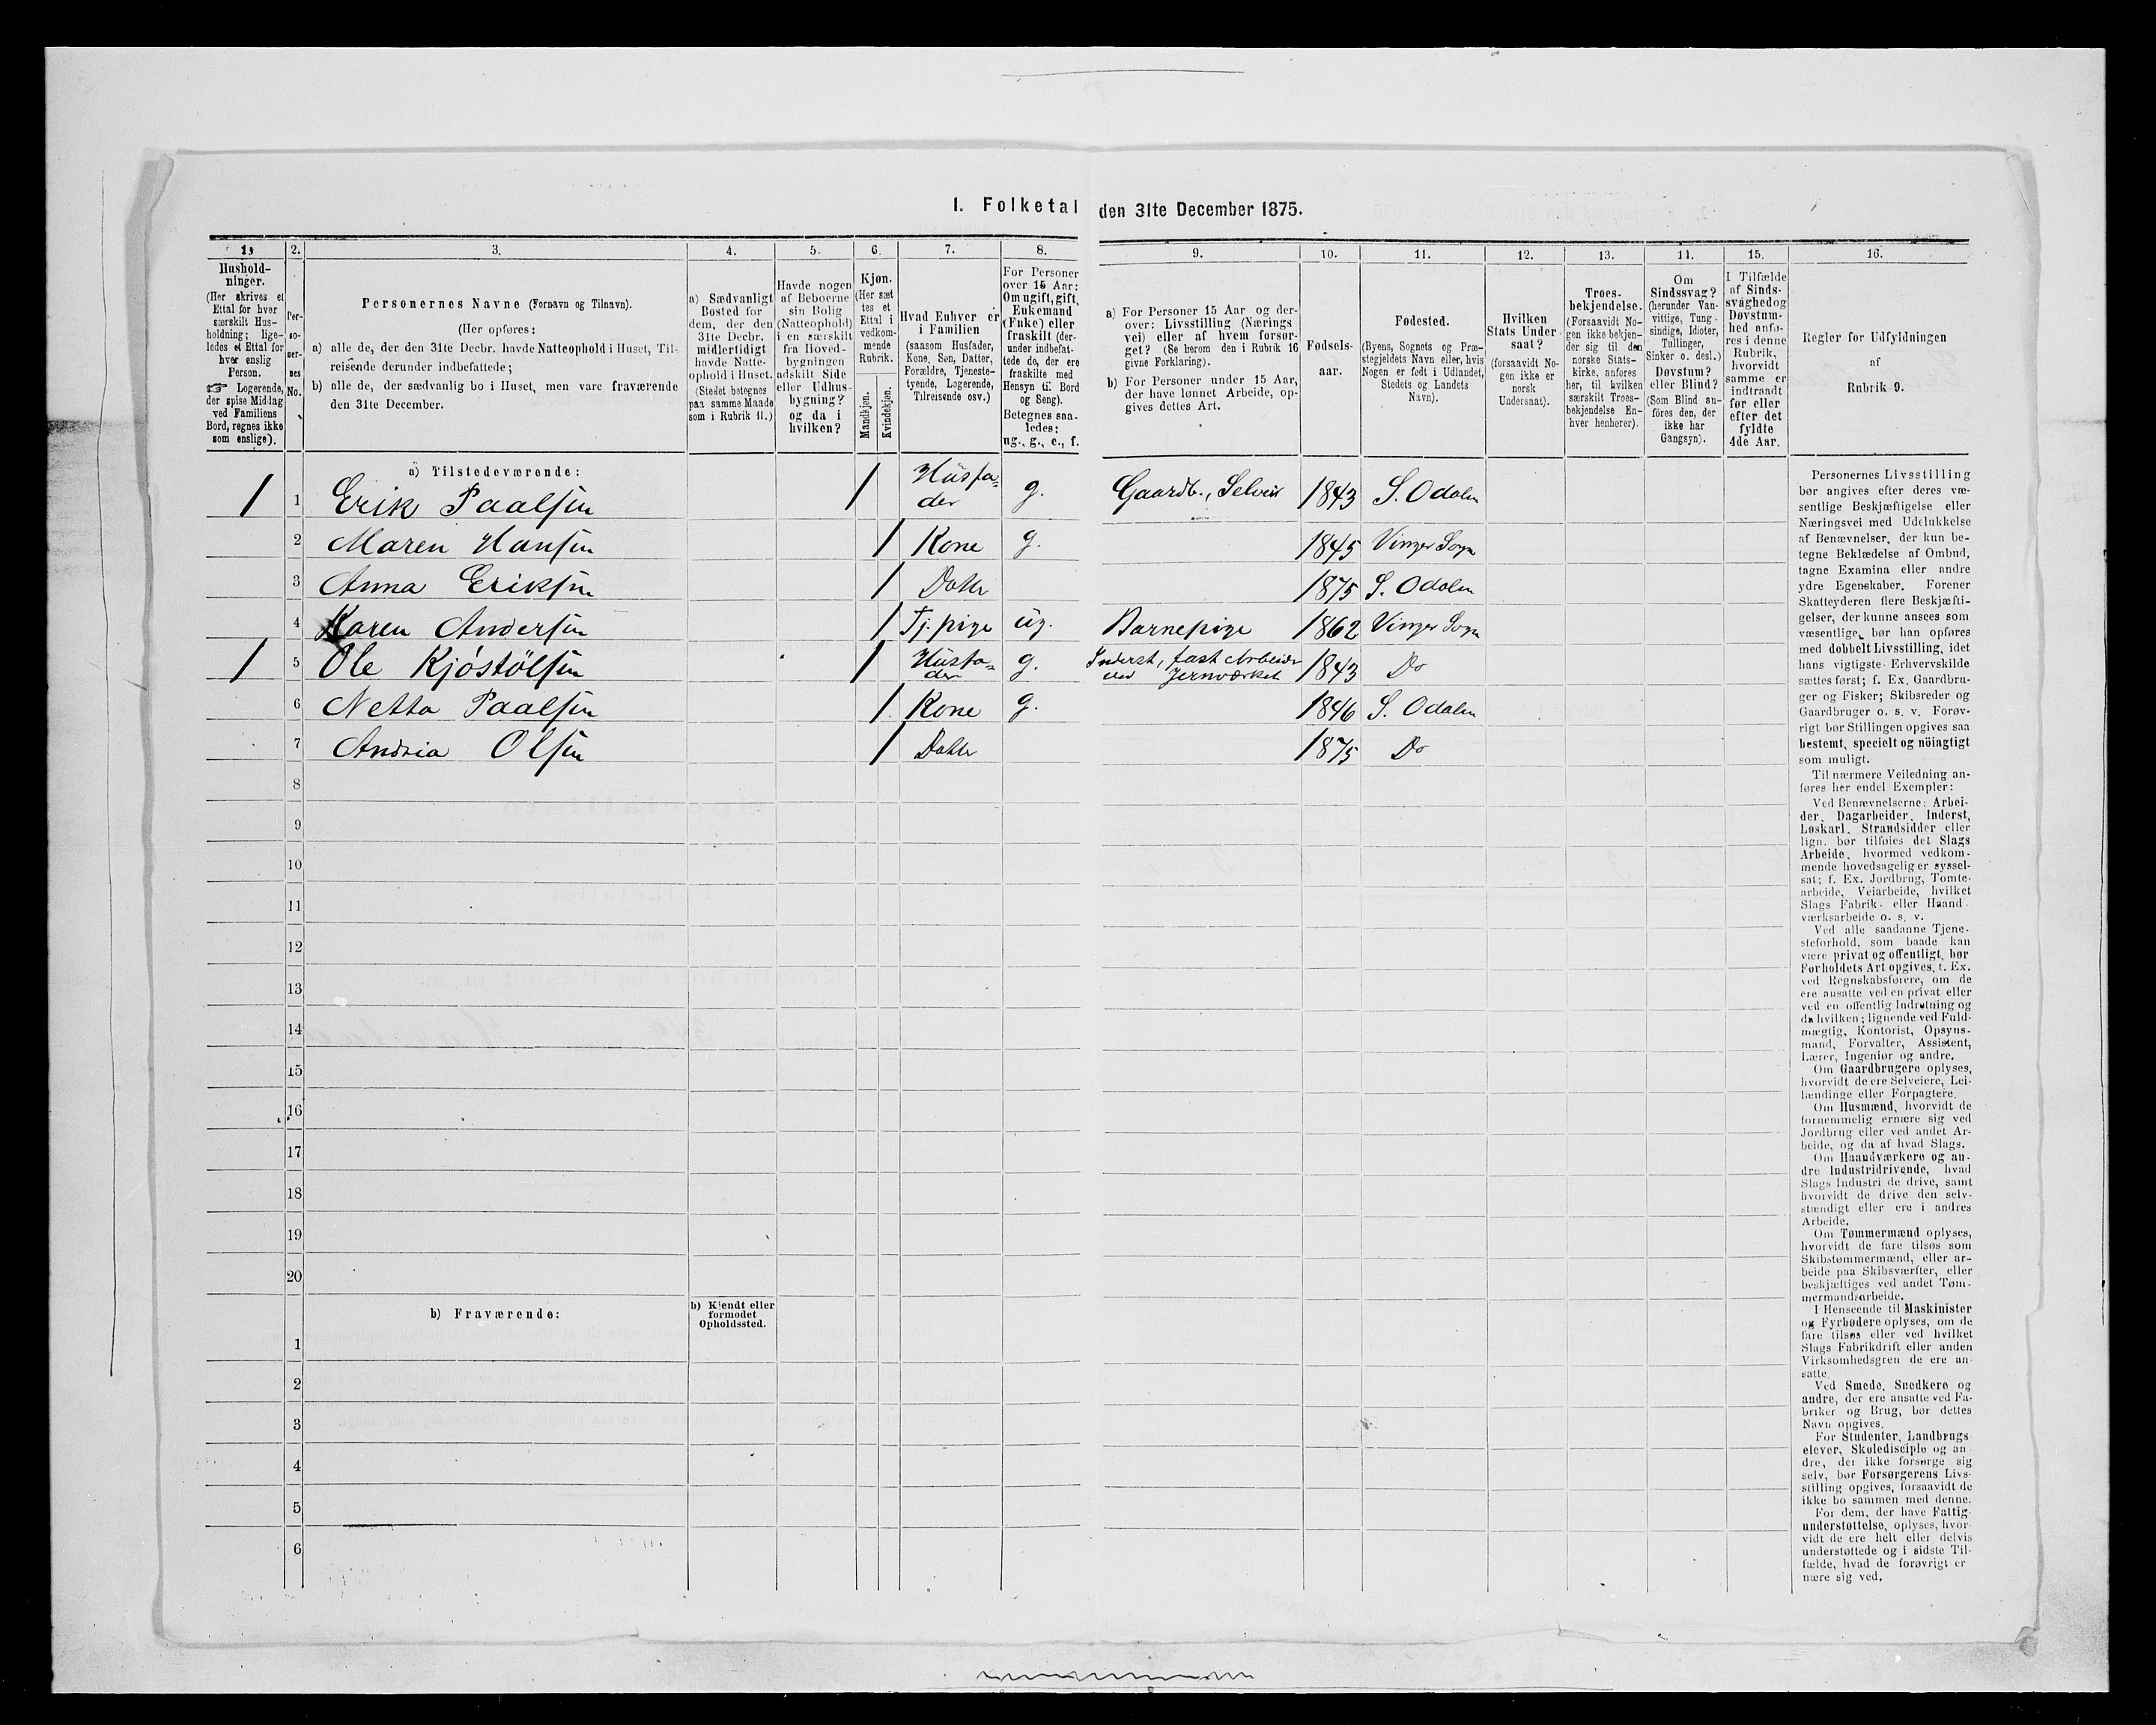 I. Folketal den 31te December 1875.
1. 2. 3. 4. 5. 6. 7. 8. 9. 10. 11. 12. 13. 14. 15. 16.
Hushold-
ninger.
(Her skrives et
Ettal for hver
særskilt Hus-
holdning; lige-
ledes et Ettal for
hver enslig
Person.
☞ Logerende,
der spise Middag
ved Familiens
Bord, regnes ikke
som enslige).
Per-
so-
ner-
nes
No.
Personernes Navne (Fornavn og Tilnavn).
(Her opføres:
a) alle de, der den 31te Decbr. havde Natteophold i Huset, Til-
reisende derunder indbefattede;
b) alle de, der sædvanlig bo i Huset, men vare fraværende
den 31te December.
a) Sædvanligt
Bosted for
dem, der den
31te Decbr.
midlertidigt
havde Natte-
ophold i Huset.
(Stedet betegnes
paa samme Maade
som i Rubrik 11.)
Havde nogen
af Beboerne
sin Bolig
(Natteophold)
i en særskilt
fra Hoved-
bygningen
adskilt Side
eller Udhus-
bygning?
og da i
hvilken?
Kjøn.
(Her sæt
tes et
Ettal i
vedkom-
mende
Rubrik.
Mandkjøn.
Kvindekjøn.
Hvad Enhver er
i Familien
(saasom Husfader,
Kone, Søn, Datter,
Forældre, Tjeneste-
tyende, Logerende,
Tilreisende osv.)
For Personer
over 15 Aar:
Om ugift, gift,
Enkemand
(Enke) eller
fraskilt (der-
under indbefat-
tede de, der ere
fraskilte med
Hensyn til Bord
og Seng).
Betegnes saa-
ledes:
ug., g., e., f.
a) For Personer 15 Aar og der-
over: Livsstilling (Nærings
vei) eller af hvem forsør-
get? (Se herom den i Rubrik 16
givne Forklaring).
b) For Personer under 15 Aar,
der have lønnet Arbeide, op-
gives dettes Art.
Fødsels-
aar.
Fødested.
(Byens, Sognets og Præ-
stegjeldets Navn eller, hvis
Nogen er født i Udlandet,
Stedets og Landets
Navn).
Hvilken
Stats Under-
saat?
(forsaavidt No-
gen ikke er
norsk
Undersaat).
Troes-
bekjendelse.
(Forsaavidt No-
gen ikke bekjen-
der sig til den
norske Stats-
kirke, anføres
her, til hvilken
særskilt Troes-
bekjendelse En-
hver henhører).
Om
Sindssvag?
(herunder Van-
vittige, Tung-
sindige, Idioter,
Tullinger,
Sinker o. desl.)
Døvstum?
eller Blind?
(Som Blind an-
føres den, der
ikke har
Gangsyn).
I Tilfælde
af Sinds-
svaghed og
Døvstum-
hed anfø-
res i denne
Rubrik,
hvorvidt
samme er
indtraadt
før eller
efter det
fyldte
4de Aar.
Regler for Udfyldningen
af
Rubrik 9.
a) Tilstedeværende:
1 1 Erik Paalsen 1 Husfa-
der g. Gaardb., Selveier 1843 S. Odalen
2 Maren Hansen 1 Kone g. 1845 Vinger Sogn
3 Anna Eriksen 1 Datter 1875 S. Odalen
4 Karen Andersen 1 Tj. pige ug. Barnepige 1862 Vinger Sogn
1 5 Ole Kjøstølsen 1 Husfa-
der g. Inderst, fast Arbeider
ved Jernværket 1843 Do
6 Netta Paalsen 1 Kone g. 1846 S. Odalen
7 Andria Olsen 1 Datter 1875 Do
8
9
10
11
12
13
14
15
16
17
18
19
20
b) Fraværende:
b) Kjendt eller
formodet
Opholdssted.
1
2
3
4
5
6
Personernes Livsstilling
bør angives efter deres væ-
sentlige Beskjæftigelse eller
Næringsvei med Udelukkelse
af Benævnelser, der kun be-
tegne Beklædelse af Ombud,
tagne Examina eller andre
ydre Egenskaber. Forener
Skatteyderen flere Beskjæfti-
gelser, der kunne ansees som
væsentlige, bør han opføres
med dobbelt Livsstilling, idet
hans vigtigste Erhvervskilde
sættes først; f. Ex. Gaardbru-
ger og Fisker; Skibsreder og
Gaardbruger o. s. v. Forøv-
rigt bør Stillingen opgives saa
bestemt, specielt og nöiagtigt
som muligt.
Til nærmere Veiledning an-
føres her endel Exempler:
Ved Benævnelserne: Arbei-
der, Dagarbeider, Inderst,
Løskarl, Strandsidder eller
lign. bør tilføies det Slags
Arbeide, hvormed vedkom-
mende hovedsagelig er syssel-
sat; f. Ex. Jordbrug, Tomte-
arbeide, Veiarbeide, hvilket
Slags Fabrik- eller Haand-
værksarbeide o. s. v.
Ved alle saadanne Tjene-
steforhold, som baade kan
være privat og offentligt, bør
Forholdets Art opgives, t. Ex.
ved Regnskabsførere, om de
ere ansatte ved en privat eller
ved en offentlig Indretning og
da hvilken; lignende ved Fuld-
mægtig, Kontorist, Opsyns-
mand, Forvalter, Assistent,
Lærer, Ingeniør og andre.
Om Gaardbrugere oplyses,
hvorvidt de ere Selveiere, Lei-
lændinge eller Forpagtere.
Om Husmænd, hvorvidt de
fornemmelig ernære sig ved
Jordbrug eller ved andet Ar-
beide, og da af hvad Slags.
Om Haandværkere og an-
dre Industridrivende, hvad
Slags Industri de drive, samt
hvorvidt de drive den selv-
stændigt eller ere i andres
Arbeide.
Om Tømmermænd oplyses,
hvorvidt de fare tilsøs som
Skibstømmermænd, eller ar-
beide paa Skibsværfter, eller
beskjæftiges ved andet Tøm-
mermandsarbeide.
I Henseende til Maskinister
og Fyrbødere oplyses, om de
fare tilsøs eller ved hvilket
Slags Fabrikdrift eller anden
Virksomhedsgren de ere an-
satte.
Ved Smede, Snedkere og
andre, der ere ansatte ved Fa-
briker og Brug, bør dettes
Navn opgives.
For Studenter, Landbrugs-
elever, Skoledisciple og an
dre, der ikke forsørge sig
selv, bør Forsørgerens Livs-
stilling opgives, forsaavidt de
ikke bo sammen med denne.
For dem, der have Fattig-
understøttelse, oplyses, hvor-
vidt de ere helt eller delvis
understøttede og i sidste Til-
fælde, hvad de forøvrigt er
nære sig ved.